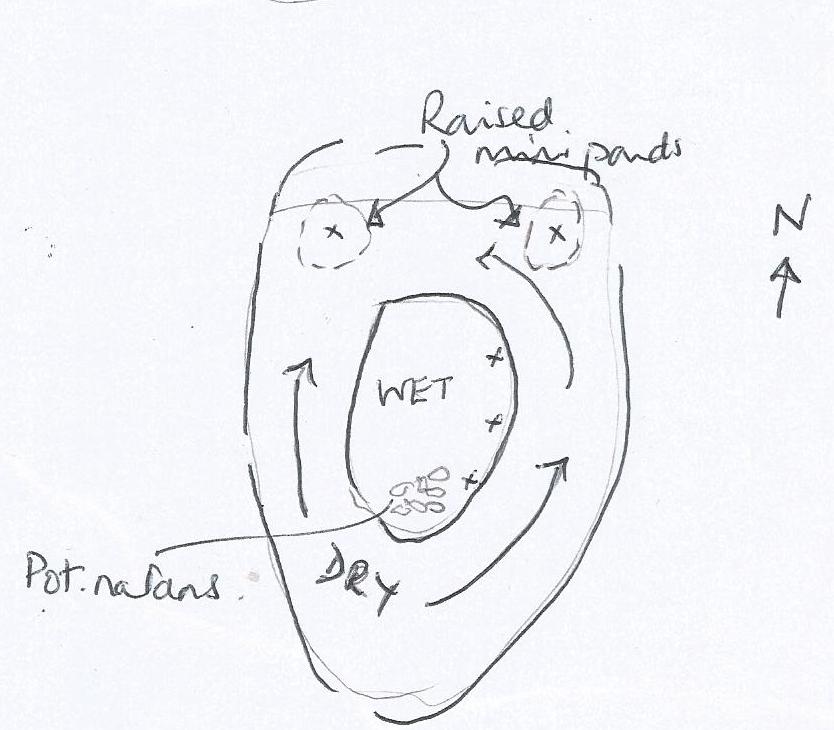 Raised
mini ponds
N
WET
Pot. natans.
DRY